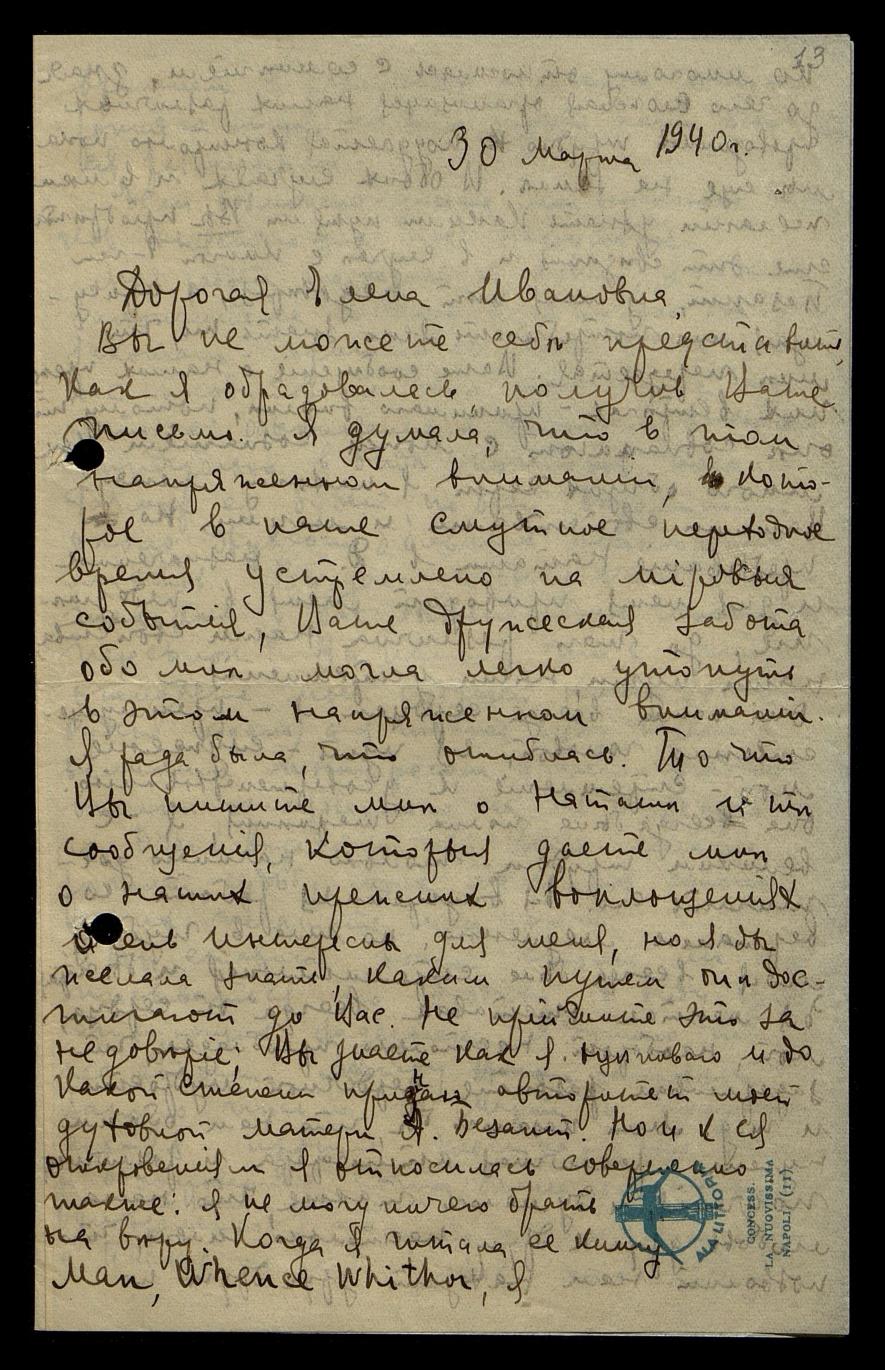 13
30 Марта 1940г.
Дорогая Елена Ивановна,
Вы не можете себѣ представить,
какъ я обрадовалась получивъ Ваше
письмо. Я думала, что в том
напряженном вниманіи, кото-
рое в наше смутное переходное
время устремлено на міровыя
событія, Ваша дружеская забота
обо мнѣ могла легко утонуть
в этом напряженном вниманіи.
Я рада была, что ошиблась. То что
Вы пишите мнѣ о Наташѣ и тѣ
сообщенія, которыя даете мнѣ
о наших прежних воплощеніях
очень интересны для меня, но я бы
желала знать, каким путем они дос-
тигают до Вас. Не примите это за
недовѣріе; Вы знаете как я и до
какой степени авторитет моей
духовной матери А. Безант. Но и к ея
откровеніям я относилась совершенно
также: я не могу ничего брать
на вѣру. Когда я читала ее книгу
Man, Whence Whither, я
CONCESS.
LA NUOVISSIMA
NAPOLI (11)